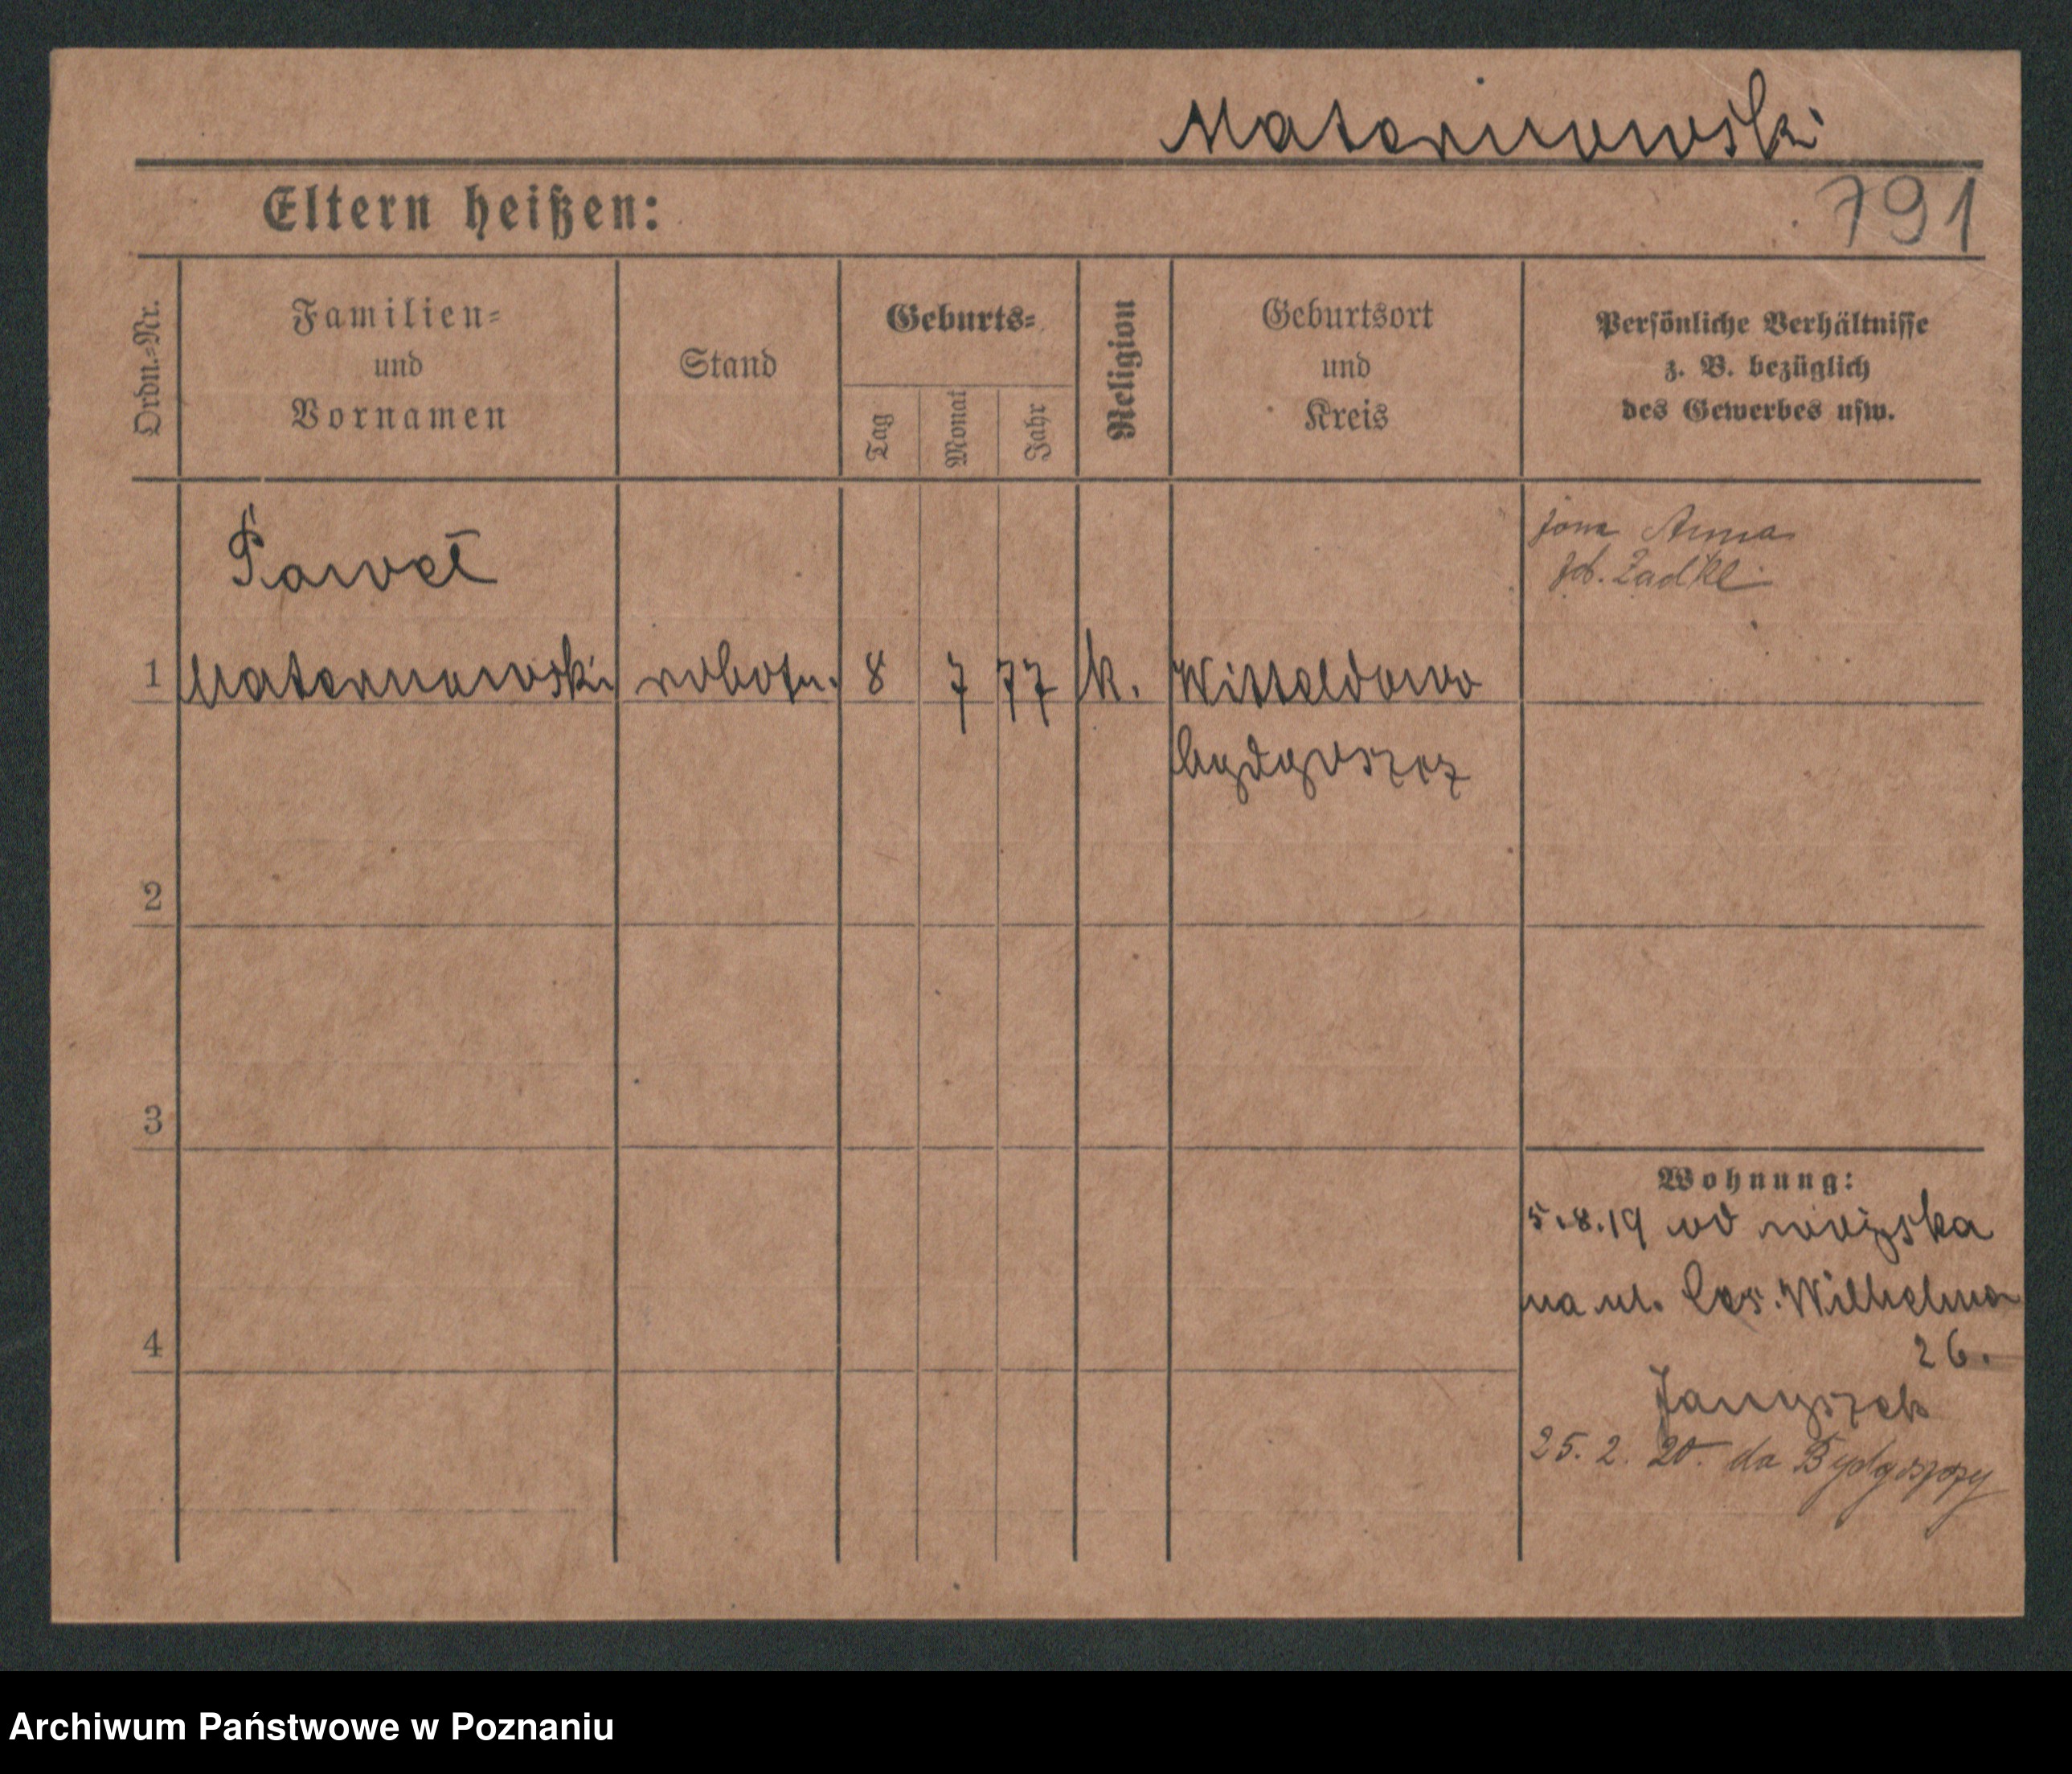 Maternowski
Eltern heißen:
791
Ordn.=Nr.
Familien=
und
Vornamen
Stand
Geburts=
Tag
Monat
Jahr
Religion
Geburtsort
und
Kreis
Persönliche Verhältnisse
z. B. bezüglich
des Gewerbes usw.
Paweł
żona Anna
1 Maternowski robotn. 8 7 77 k. Witteldowo
bydgoszcz
2
3
4
Wohnung:
5.8.19 od wojska
na ul. Ces. Wilhelma
26.
Januszek
25. 2. 20. do Bydgoszczy
Archiwum Państwowe w Poznaniu